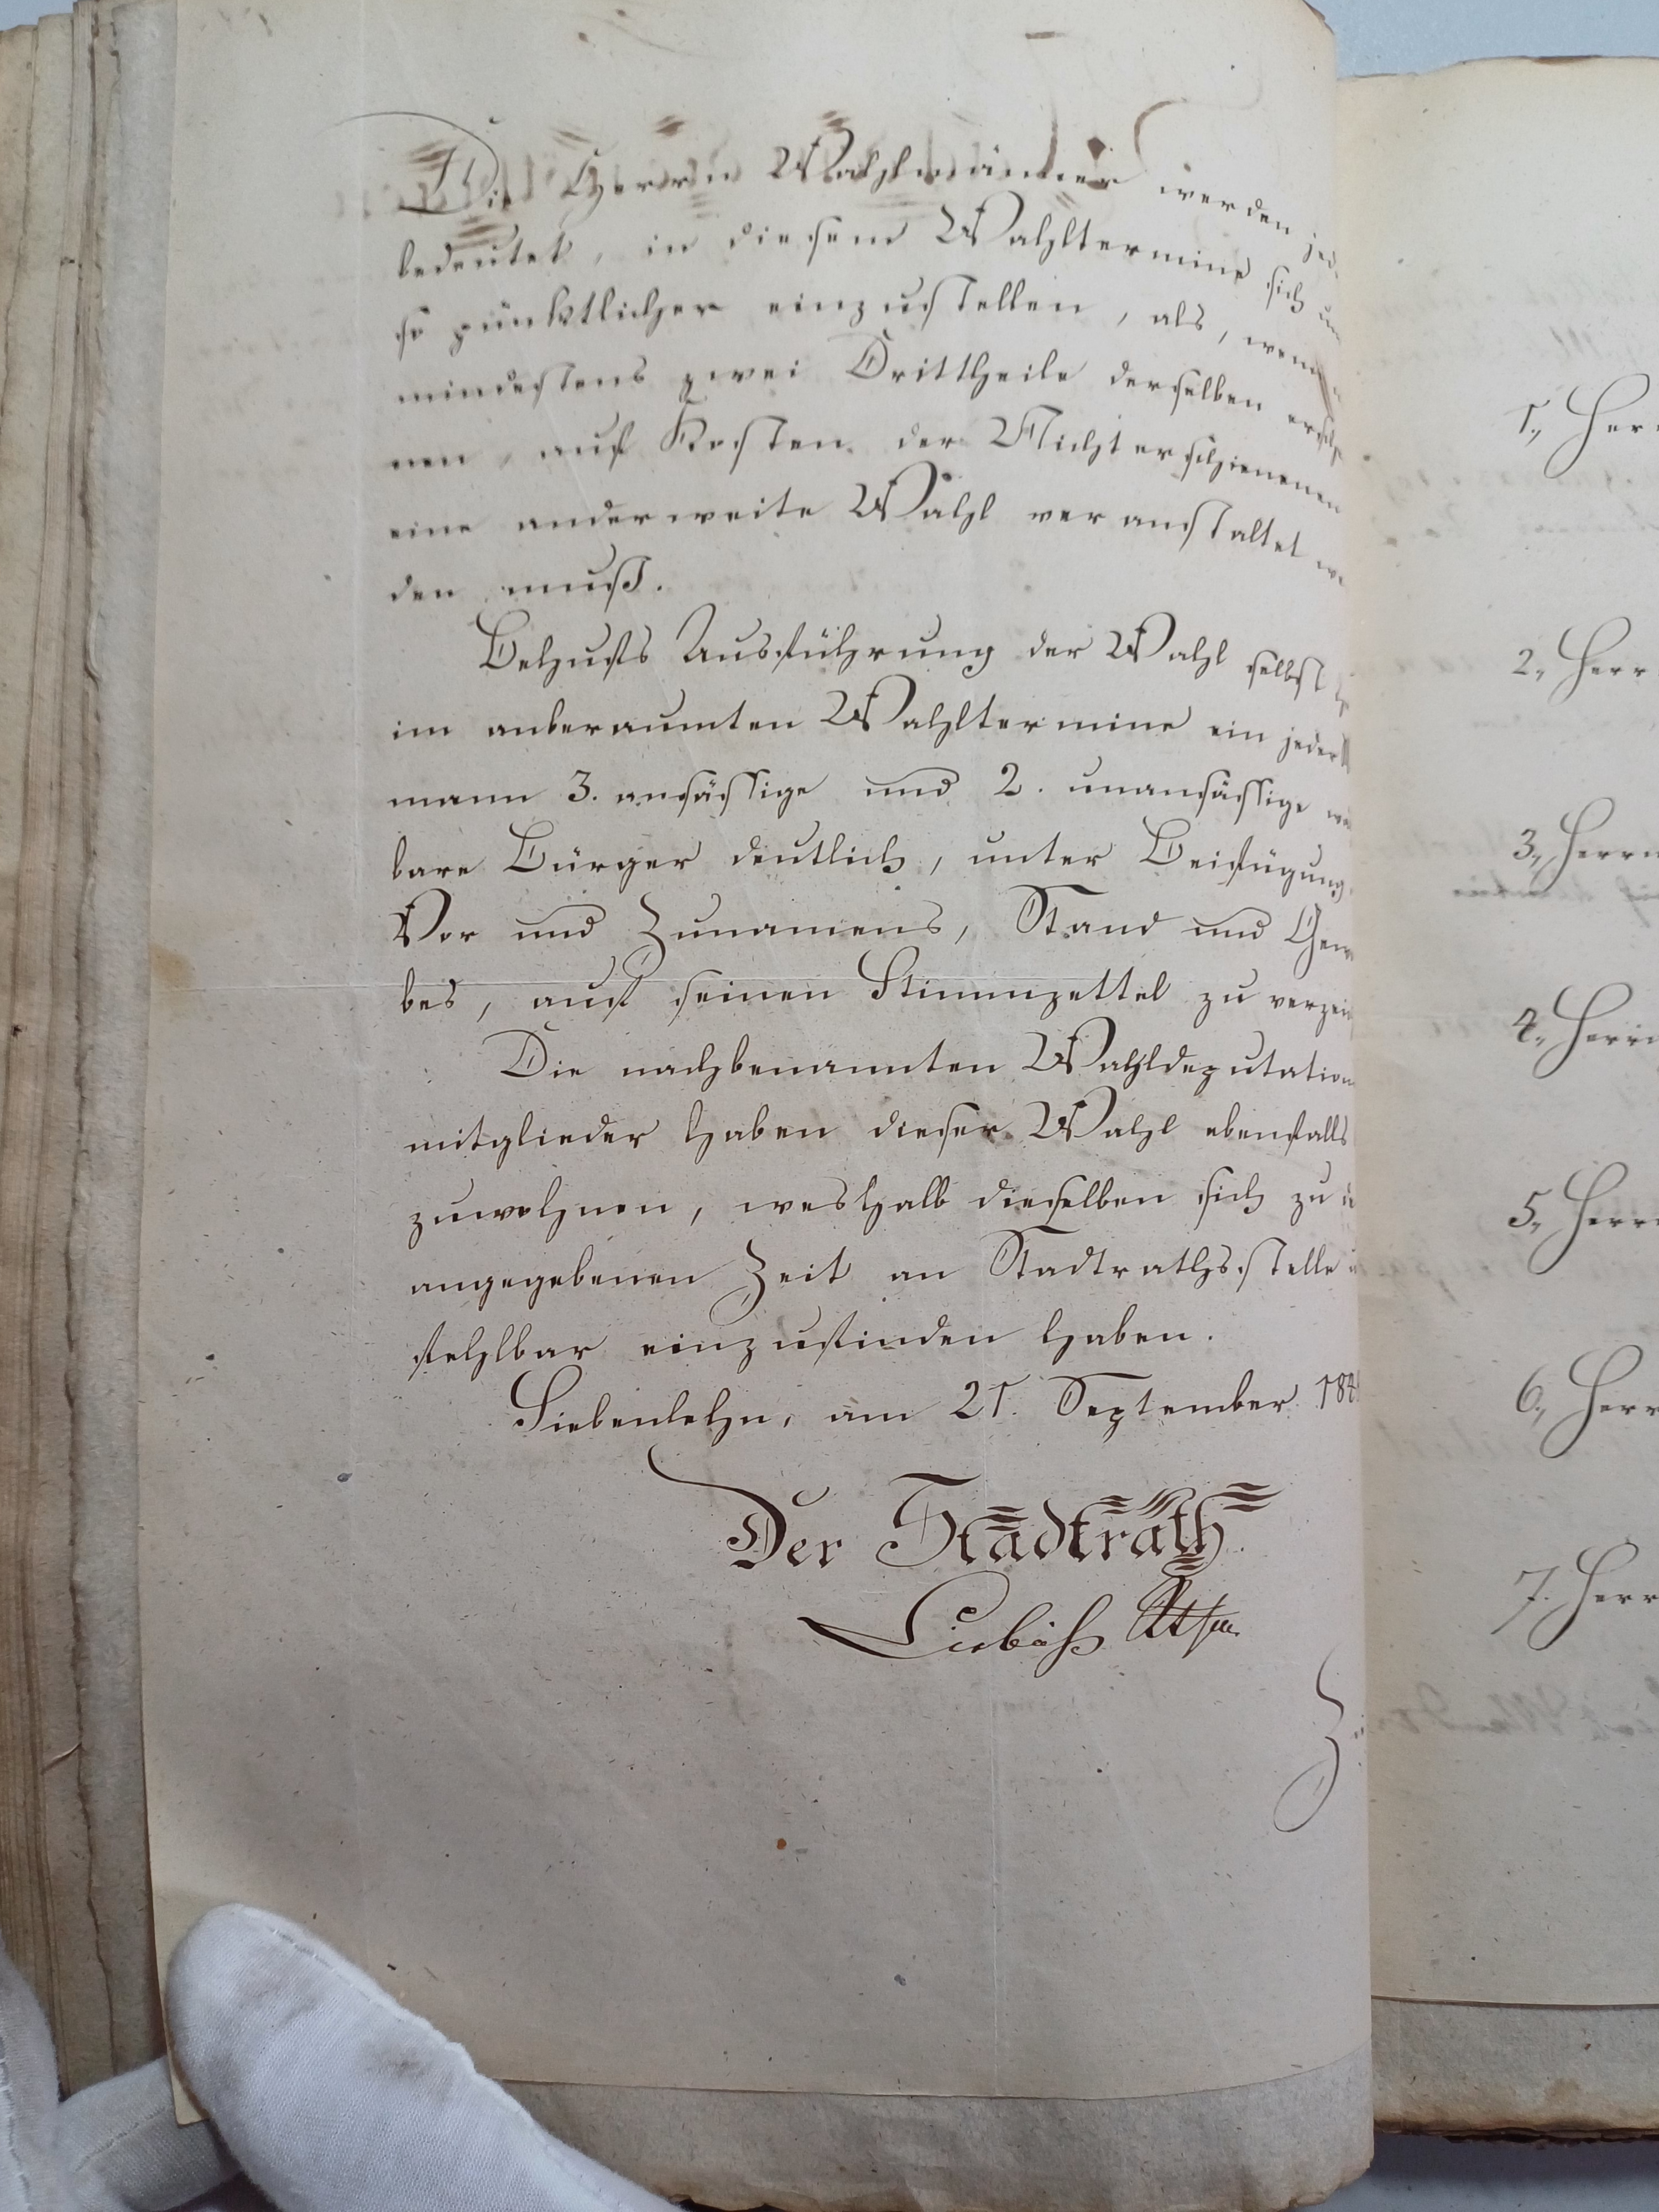 Die Herren Wahlmänner werden jed
bedeutet, in diesem Wahltermine sich um
so pünktlicher einzustellen, als, wenn
mindestens zwei Drittheile derselben ersch
nen, auf Kosten der Nichterschienenen
eine anderweite Wahl veranstaltet we
den muß.
Behufs Ausführung der Wahl selbst
im anberaumten Wahltermine ein jeder
mann 3. ansässige und 2. unansässige wä
bare Bürger deutlich, unter Beifügung
Vor und Zunamens, Stand und Gew
bes, auf seinen Stimmzettel zu verzei
Die nachbenannten Wahldeputation
mitglieder haben dieser Wahl ebenfalls
zuwohnen, weshalb dieselben sich zu
angegebenen Zeit an Stadtrathsstelle
fehlbar einzufinden haben.
Siebenlehn, am 21. September 184
Der Stadtrath.
1., Her
2., Herr
3., Herrn
4., Herrn
5., Herr
6., Herr
7. Herr